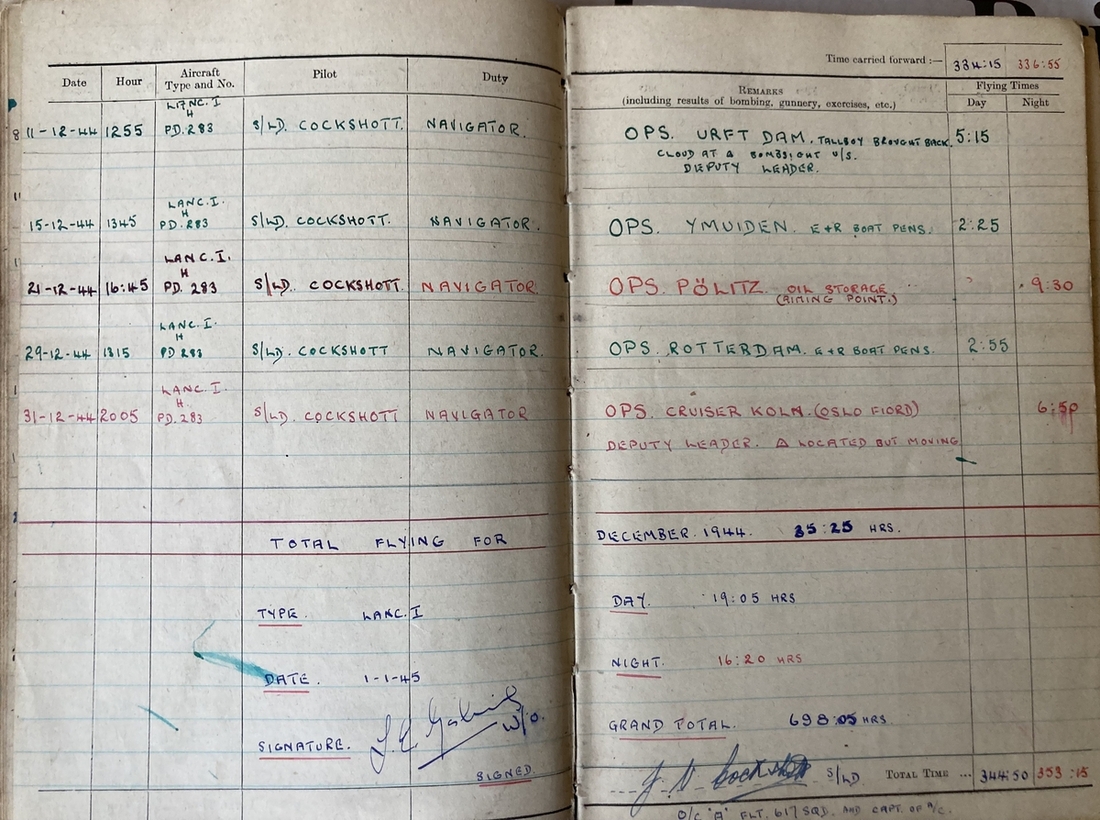 Time carried forward :— 334:15 336:55
Date Hour Aircraft Type and No. Pilot Duty REMARKS (including results of bombing, gunnery, exercises, etc.) Flying Times Day Night
LANC. I
H
11-12-44 1255 PD.283 S/LD. COCKSHOTT. NAVIGATOR. OPS. URFT DAM. TALLBOY BROUGHT BACK. 5:15
CLOUD AT Δ BOMBSIGHT U/S.
DEPUTY LEADER.
LANC. I.
H
15-12-44 1345 PD.283 S/LD. COCKSHOTT. NAVIGATOR. OPS. YMUIDEN. E+R BOAT PENS. 2:25
LANC. I.
H
21-12-44 16:45 PD.283 S/LD. COCKSHOTT NAVIGATOR. OPS. PÖLITZ. OIL STORAGE 9:30
(AIMING POINT.)
LANC. I.
H
29-12-44 1315 PD 283 S/LD. COCKSHOTT NAVIGATOR. OPS. ROTTERDAM. E+R BOAT PENS. 2:55
LANC. I.
H
31-12-44 2005 PD.283 S/LD. COCKSHOTT NAVIGATOR OPS. CRUISER KOLN. (OSLO FIORD) 6:50
DEPUTY LEADER. Δ LOCATED BUT MOVING
TOTAL FLYING FOR DECEMBER. 1944. 35:25 HRS.
TYPE. LANC. I DAY. 19:05 HRS
DATE. 1-1-45 NIGHT. 16:20 HRS
SIGNATURE. W/O. GRAND TOTAL. 698:05 HRS
SIGNED. S/LD TOTAL TIME ... 344:50 353:15
O/C 'A' FLT. 617 SQD. AND CAPT. OF A/C.